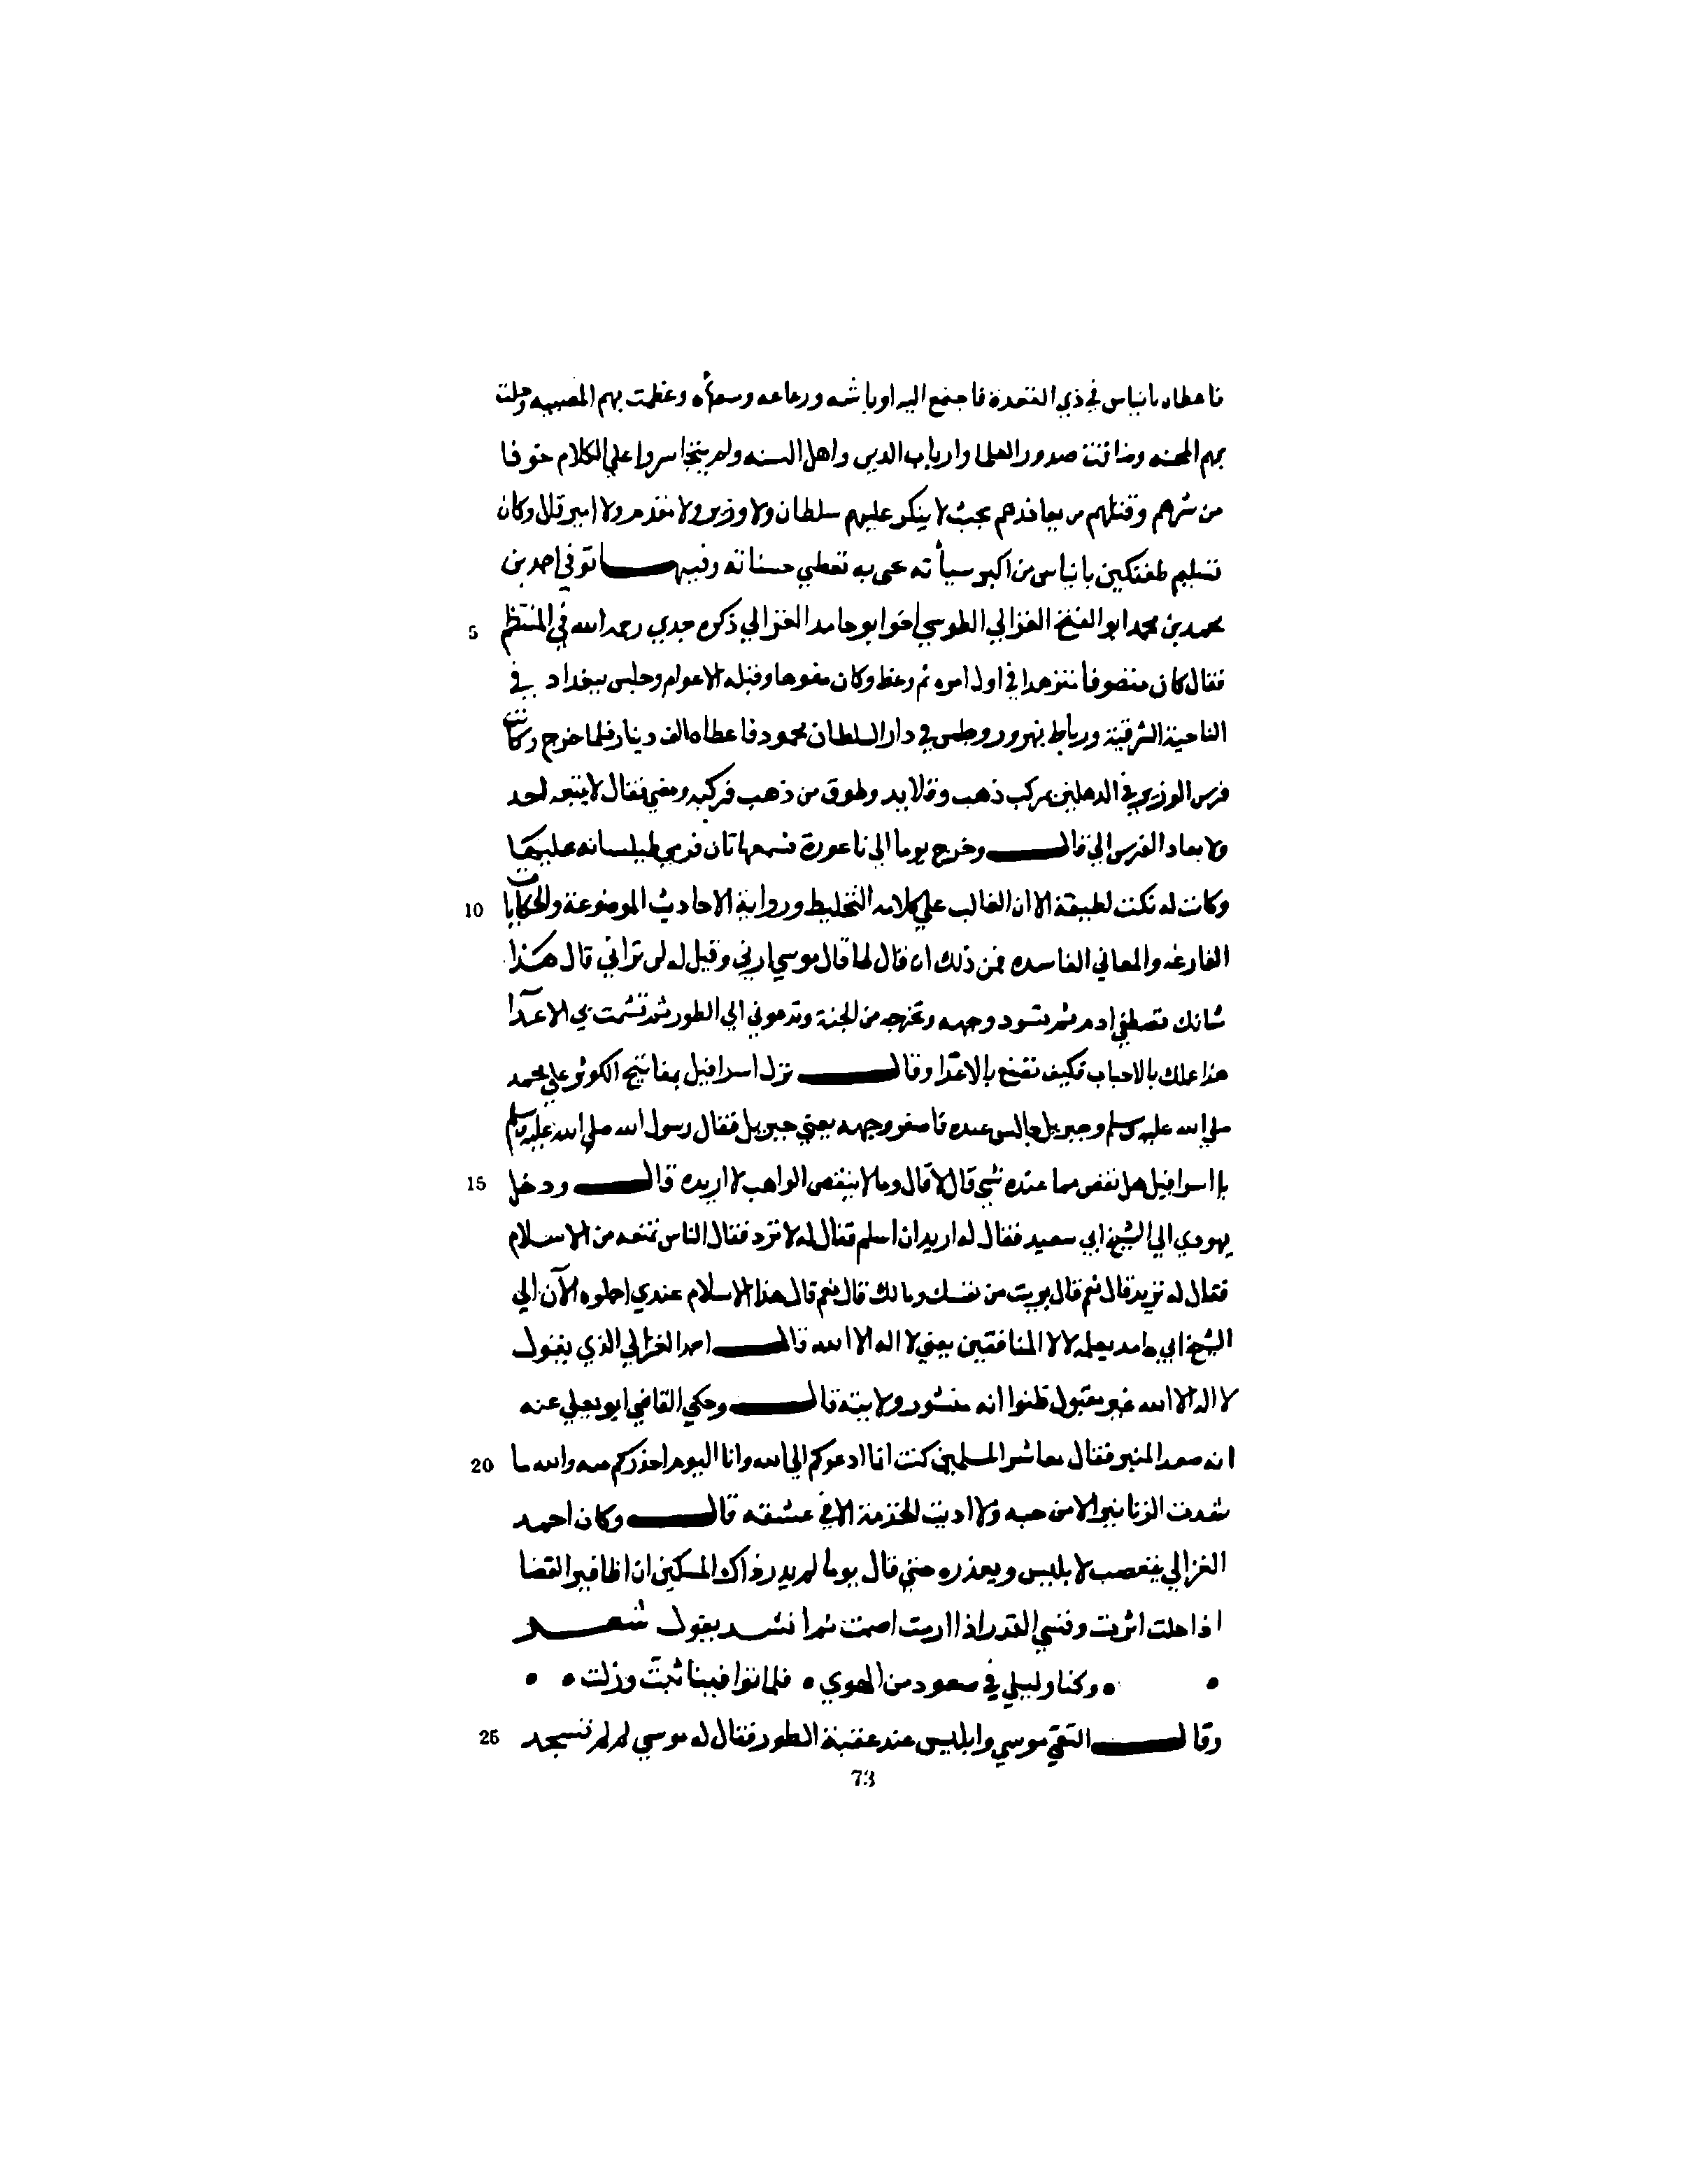 فاعطاه بانياس في ذي القعدة فاجتمع اليه اوباشه ورعاعه وسفهاؤه وعظمت بهم المصيبه وجلت
بهم المحنه وضاقت صدور العلما وارباب الدين واهل السنه ولم يتجاسروا علي الكلام خوفا
من شرهم وقتلهم من يعاندهم بحيث لا ينكر عليهم سلطان ولا وزير ولا مقدم ولا امير قال وكان
تسليم طغتكين بانياس من اكبر سيأته عي به تغطي حسناته وفيهـــا توفي احمد بن
5 محمد بن محمد ابو الفتح الغزالي الطوسي اخو ابو حامد الغزالي ذكره جدي رحمه الله في المنتظم
فقال كان متصوفا متزهدا في اول امره ثم وعظ وكان مفوها وقبله الاعوام وجلس ببغداد في
الناحية الشرقية ورباط بهروز وجلس في دار السلطان محمود فاعطاه الف دينار فلما خرج وكانت
فرس الوزير في الدهليز بمركب ذهب وقلايد وطوق من ذهب فركبه ومضي فقال لا يتبعه احد
ولا يعاد الفرس الي قالـــ وخرج يوما الي ناعورة فسمعها تان فرمي طيلسانه عليها
10 وكانت له نكت لطيفة الا ان الغالب علي كلامه التخليط ورواية الاحاديث الموضوعة والحكايات
الفارغه والمعاني الفاسده فمن ذلك انه قال لما قال موسي ارني وقيل له لن تراني قال هكذا
شانك تصطفي ادم ثم تسود وجهه وتخرجه من الجنة وتدعوني الي الطور ثم تشمت بي الاعدآ
هذا عملك بالاحباب فكيف تصنع بالاعدا وقالـــ نزل اسرافيل بمفاتيح الكوثر علي محمد
صلي الله عليه وسلم وجبريل جالس عنده فاصفر وجهه يعني جبريل فقال رسول الله صلي الله عليه وسلم
15 يا اسرافيل هل نقص مما عنده شي قال لا قال وما لا ينقص الواهب لا اريده قالـــ ودخل
يهودي الي الشيخ ابي سعيد فقال له اريد ان اسلم فقال له لا ترد فقال الناس تمنعه من الاسلام
فقال له تريد قال نعم قال بريت من نفسك ومالك قال نعم قال هذا الاسلام عندي احملوه الآن الي
الشيخ ابي حامد يعلمه لا لا المنافقين يعني لا اله الا الله قالـــ احمد الغزالي الذي يقول
لا اله الا الله غير مقبول ظنوا انه منشور ولايته قالـــ وحكي القاضي ابو يعلي عنه
20 انه صعد المنبر فقال معاشر المسلمين كنت انا ادعوكم الي الله وانا اليوم احذركم منه والله ما
شدت الزنانير الا من حبه ولا اديت الجزية الا في عشقه قالـــ وكان احمد
الغزالي يتعصب لابليس ويعذره حتي قال يوما لم يدر ذاك المسكين ان اظافير القضا
اذا حكت اثرت وقسي القدر اذا رمت اصمت ثم انشد يقول شعـــر
• • وكنا وليلي في صعود من الهوي • فلما توافينا ثبت وزلت • •
25 وقالـــ التقي موسي وابليس عند عقبة الطور فقال له موسي لم لم تسجد
73